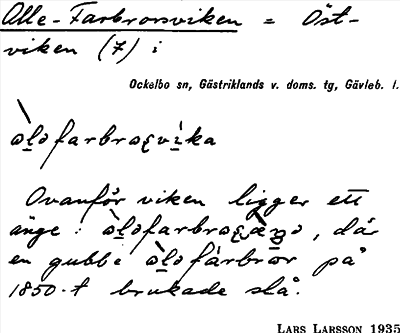 Olle-Farbrorsviken = Öst-
viken (7) i
Ockelbo sn, Gästriklands v. doms. tg, Gävleb. l.
Ovanför viken ligger ett
änge: , där
en gubbe på
1850-t brukade slå.
LARS LARSSON 1935